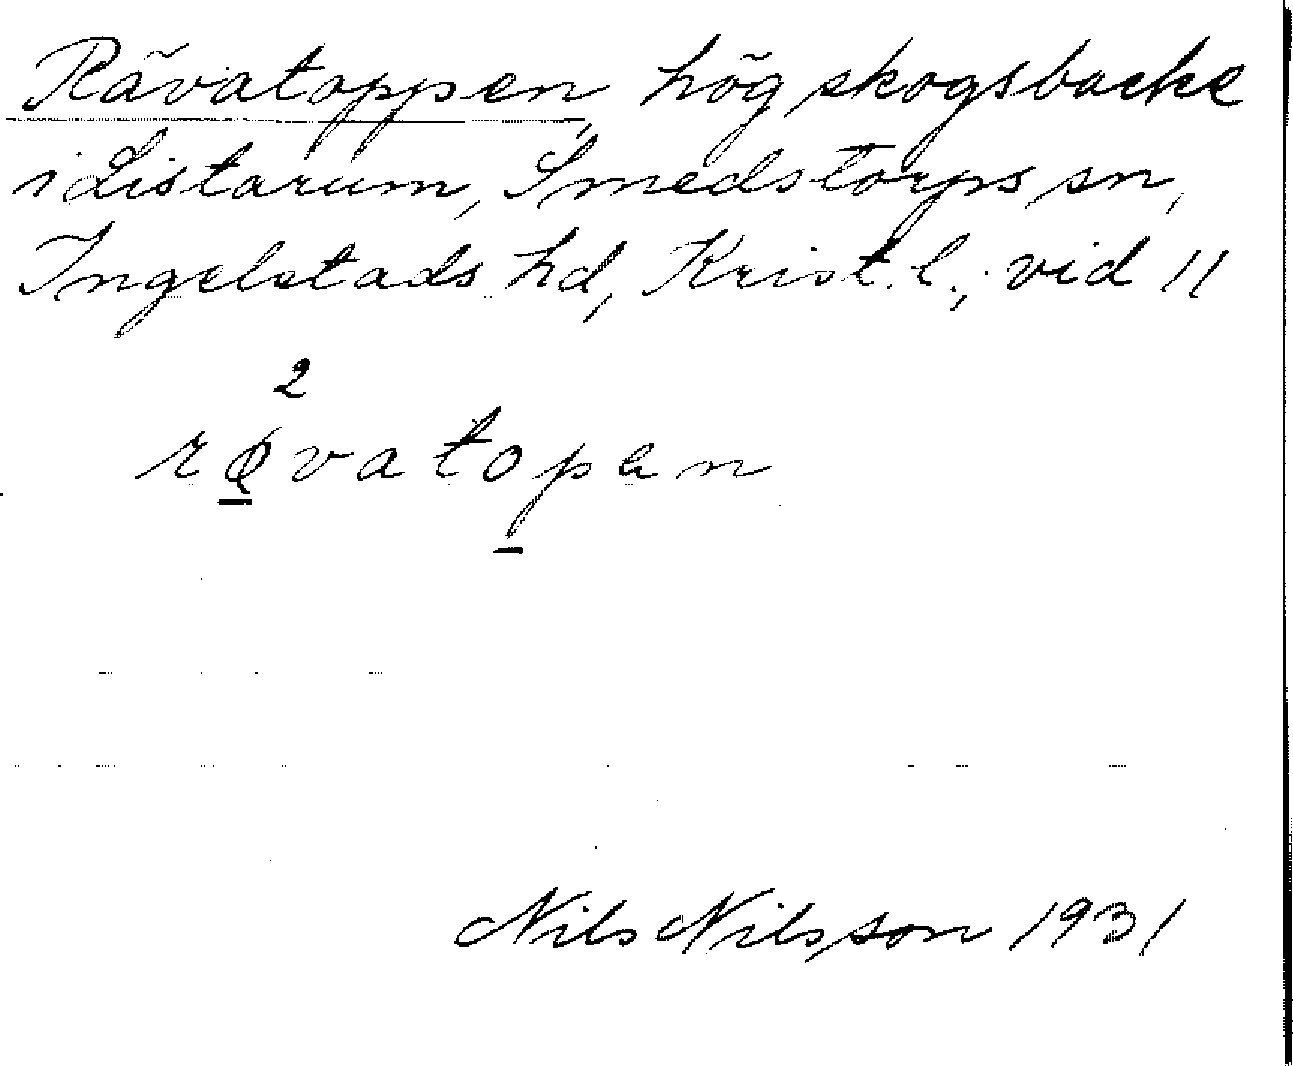 Rävatoppen, hög skogsbacke
i Listarum, Smedstorps sn,
Ingelstads hd, Krist. l., vid 11
2
rø̨vatopen
Nils Nilsson 1931